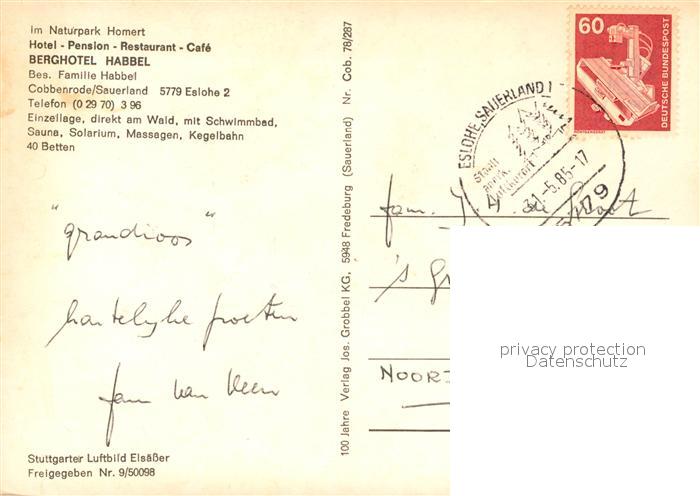 im Naturpark Homert
Hotel - Pension - Restaurant - Café
BERGHOTEL HABBEL
Bes. Familie Habbel
Cobbenrode/Sauerland 5779 Eslohe 2
Telefon (0 29 70) 3 96
Einzellage, direkt am Wald, mit Schwimmbad,
Sauna, Solarium, Massagen, Kegelbahn
40 Betten
"grandioos"
hartelijke groeten
fam van Veen
Stuttgarter Luftbild Elsäßer
Freigegeben Nr. 9/50098
100 Jahre Verlag Jos. Grobbel KG, 5948 Fredeburg (Sauerland) Nr. Cob. 78/287
60
DEUTSCHE BUNDESPOST
ESLOHE, SAUERLAND 1
Staatl.
anerk.
Luftkurort
-5.85-17
fam.
's Gr
NOOR
privacy protection
Datenschutz